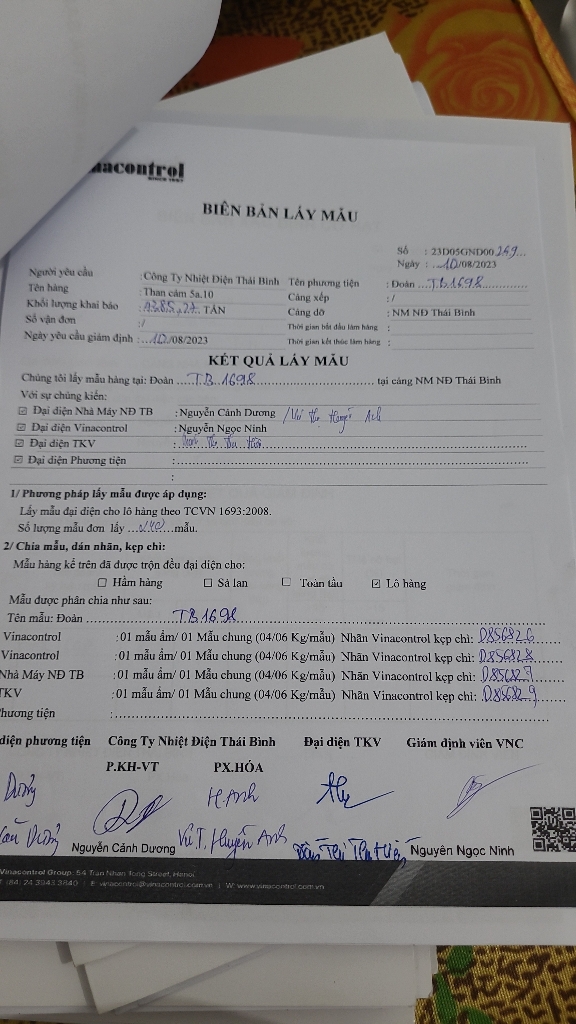 nacontrol
SINCE 1957
BIÊN BẢN LẤY MẪU
Số : 23D05GND00 249
Ngày : 10/08/2023
Người yêu cầu : Công Ty Nhiệt Điện Thái Bình Tên phương tiện : Đoàn TB1698
Tên hàng : Than cám 5a.10 Cảng xếp : /
Khối lượng khai báo TẤN Cảng dỡ : NM NĐ Thái Bình
Số vận đơn : / Thời gian bắt đầu làm hàng :
Ngày yêu cầu giám định : 10/08/2023 Thời gian kết thúc làm hàng :
KẾT QUẢ LẤY MẪU
Chúng tôi lấy mẫu hàng tại: Đoàn TB1698 tại cảng NM NĐ Thái Bình
Với sự chứng kiến:
☑ Đại diện Nhà Máy NĐ TB : Nguyễn Cảnh Dương / Vũ Thị Huyền Anh
☑ Đại diện Vinacontrol : Nguyễn Ngọc Ninh
☑ Đại diện TKV :
☑ Đại diện Phương tiện :
:
1/ Phương pháp lấy mẫu được áp dụng:
Lấy mẫu đại diện cho lô hàng theo TCVN 1693:2008.
Số lượng mẫu đơn lấy mẫu.
2/ Chia mẫu, dán nhãn, kẹp chì:
Mẫu hàng kể trên đã được trộn đều đại diện cho:
☐ Hầm hàng ☐ Sà lan ☐ Toàn tầu ☑ Lô hàng
Mẫu được phân chia như sau:
Tên mẫu: Đoàn TB1698
Vinacontrol : 01 mẫu ẩm/ 01 Mẫu chung (04/06 Kg/mẫu) Nhãn Vinacontrol kẹp chì: D856826
Vinacontrol : 01 mẫu ẩm/ 01 Mẫu chung (04/06 Kg/mẫu) Nhãn Vinacontrol kẹp chì: D856828
Nhà Máy NĐ TB : 01 mẫu ẩm/ 01 Mẫu chung (04/06 Kg/mẫu) Nhãn Vinacontrol kẹp chì: D856827
TKV : 01 mẫu ẩm/ 01 Mẫu chung (04/06 Kg/mẫu) Nhãn Vinacontrol kẹp chì: D856829
hương tiện :
diện phương tiện Công Ty Nhiệt Điện Thái Bình Đại diện TKV Giám định viên VNC
P.KH-VT PX.HÓA
Dương H.Anh
Dương Nguyễn Cảnh Dương Vũ.T. Huyền Anh Nguyễn Ngọc Ninh
Vinacontrol Group: 54 Tran Nhan Tong Street, Hanoi
T: (84) 24 3943 3840 | E: vinacontrol@vinacontrol.com.vn | W: www.vinacontrol.com.vn